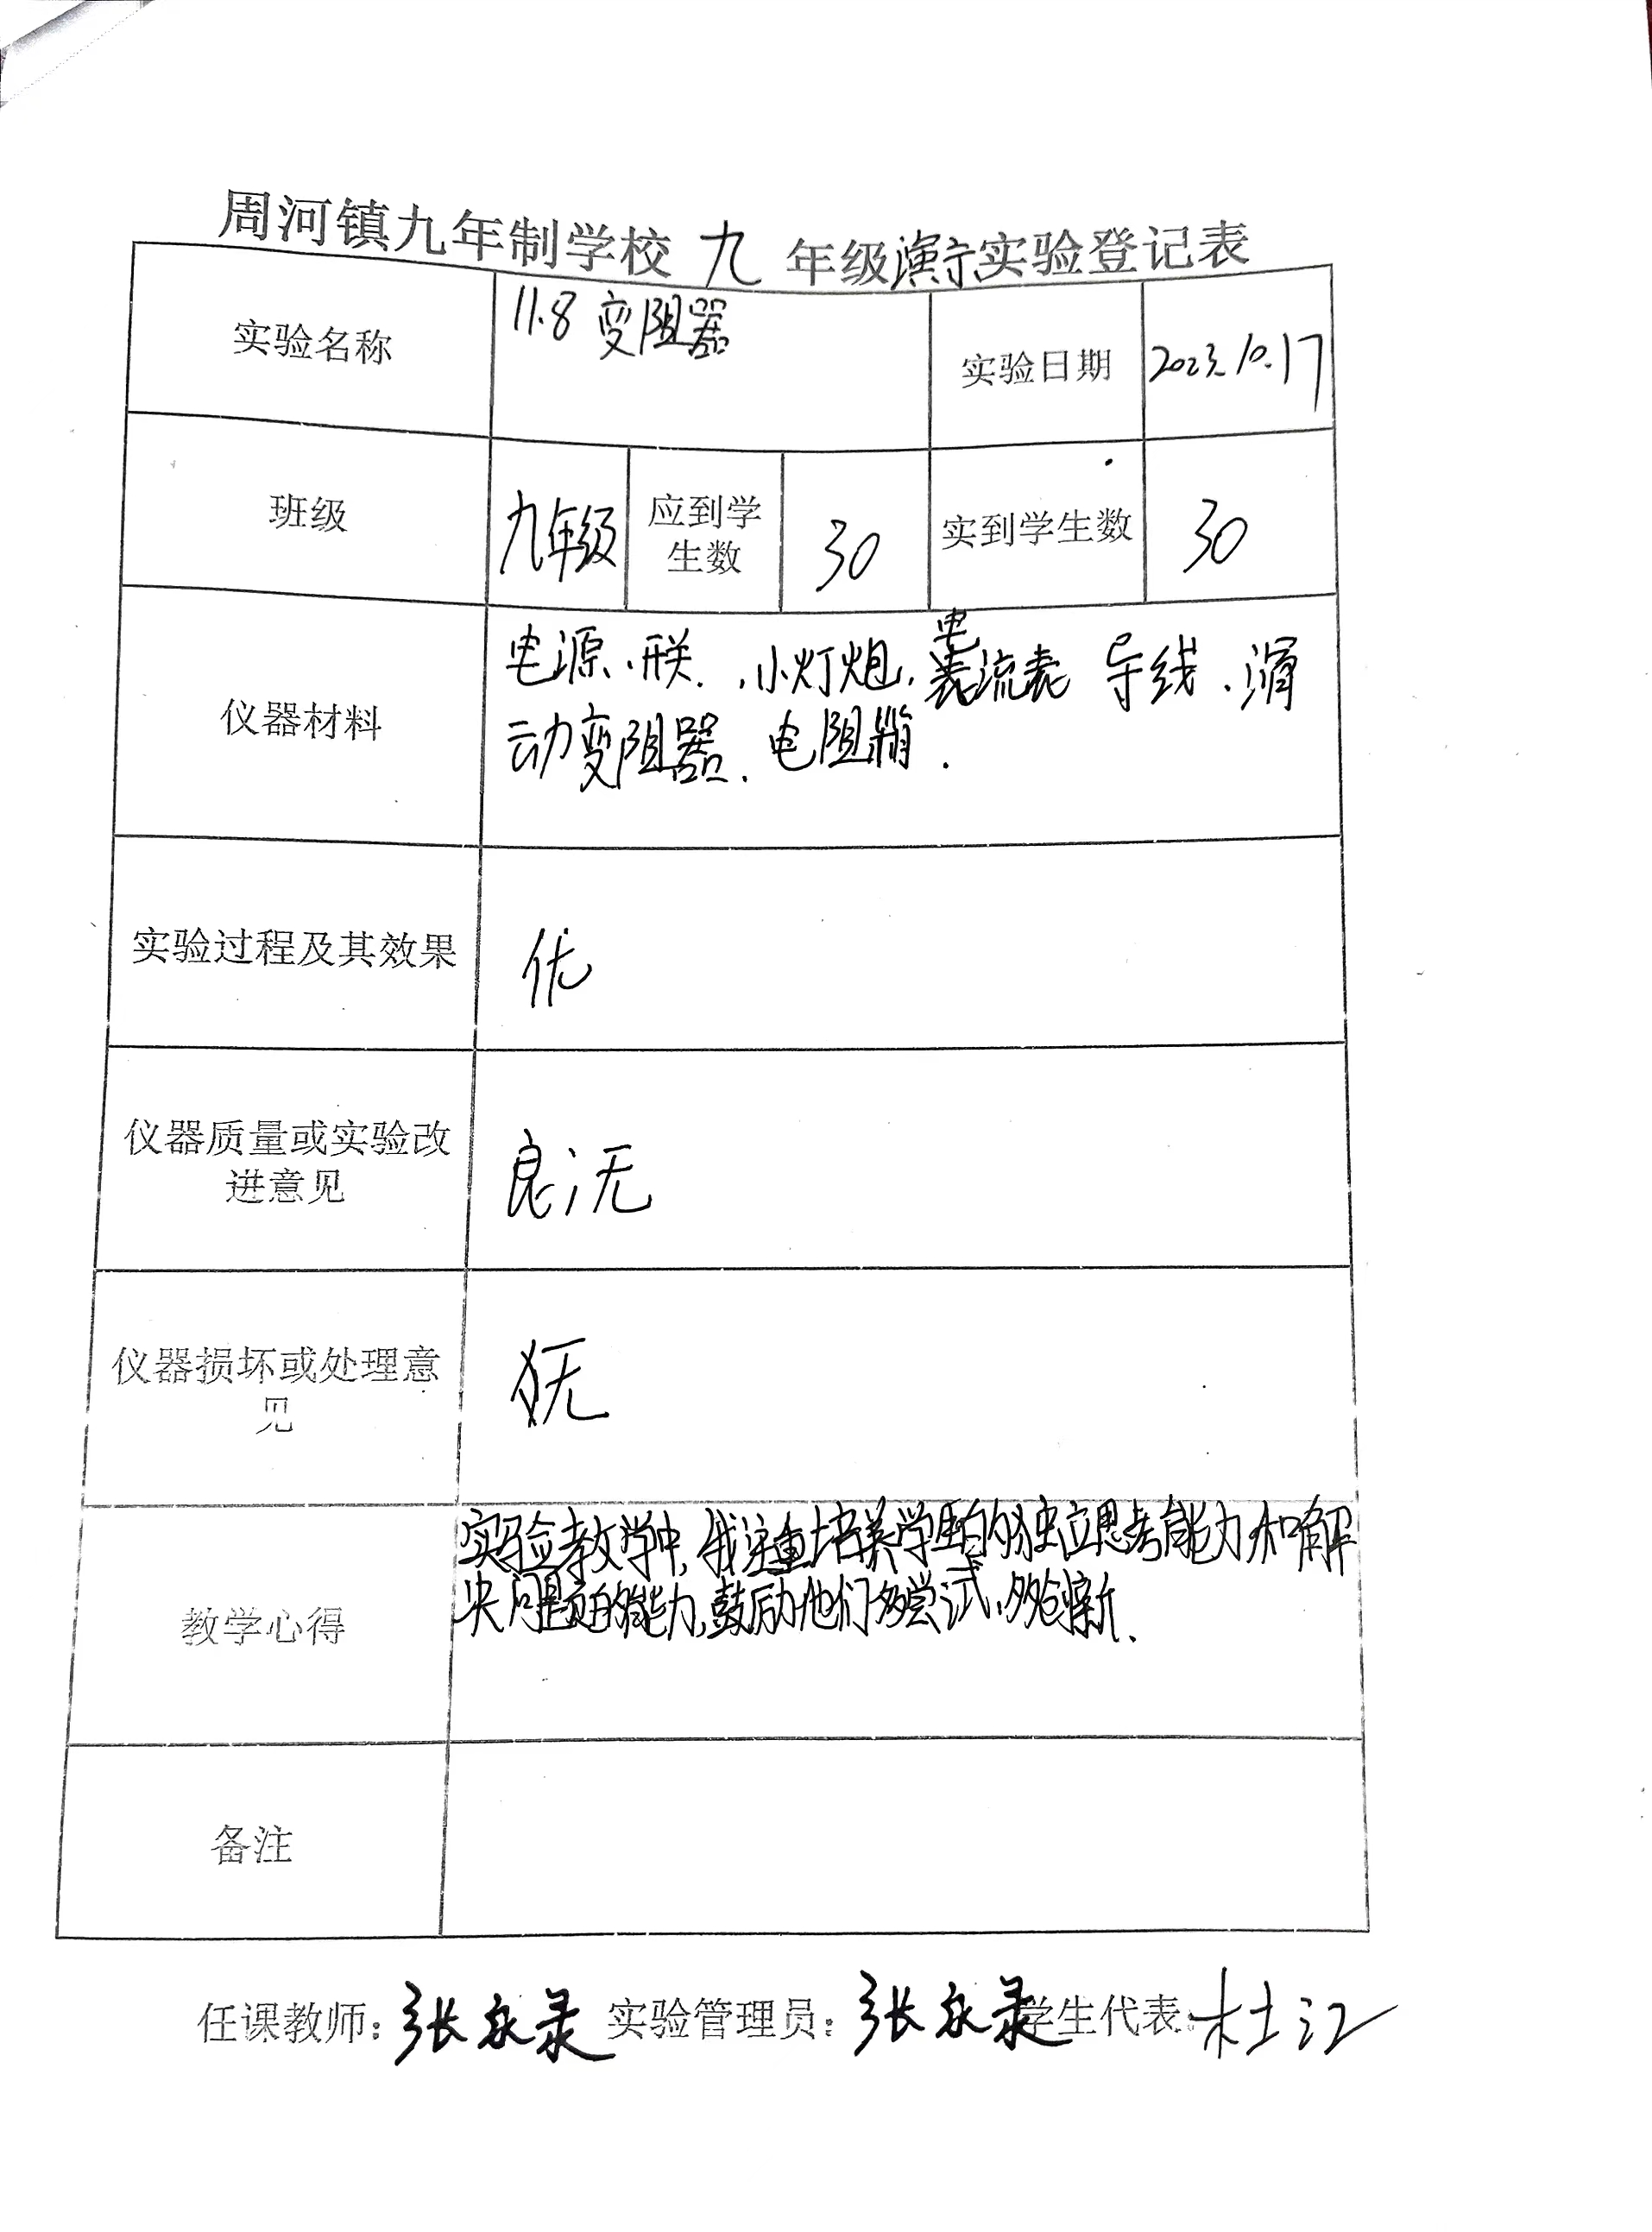 周河镇九年制学校 九 年级演示实验登记表
实验名称 11.8 变阻器 实验日期 2023.10.17
班级 九年级 应到学生数 30 实到学生数 30
仪器材料 电源、开关、小灯炮、电流表 导线、滑
动变阻器、电阻箱.
实验过程及其效果 优
仪器质量或实验改
进意见 良;无
仪器损坏或处理意
见 无
实验教学中,我注重培养学生的独立思考能力和解
决问题的能力,鼓励他们多尝试、多创新.
教学心得
备注
任课教师:张永录 实验管理员:张永录 学生代表:杜江